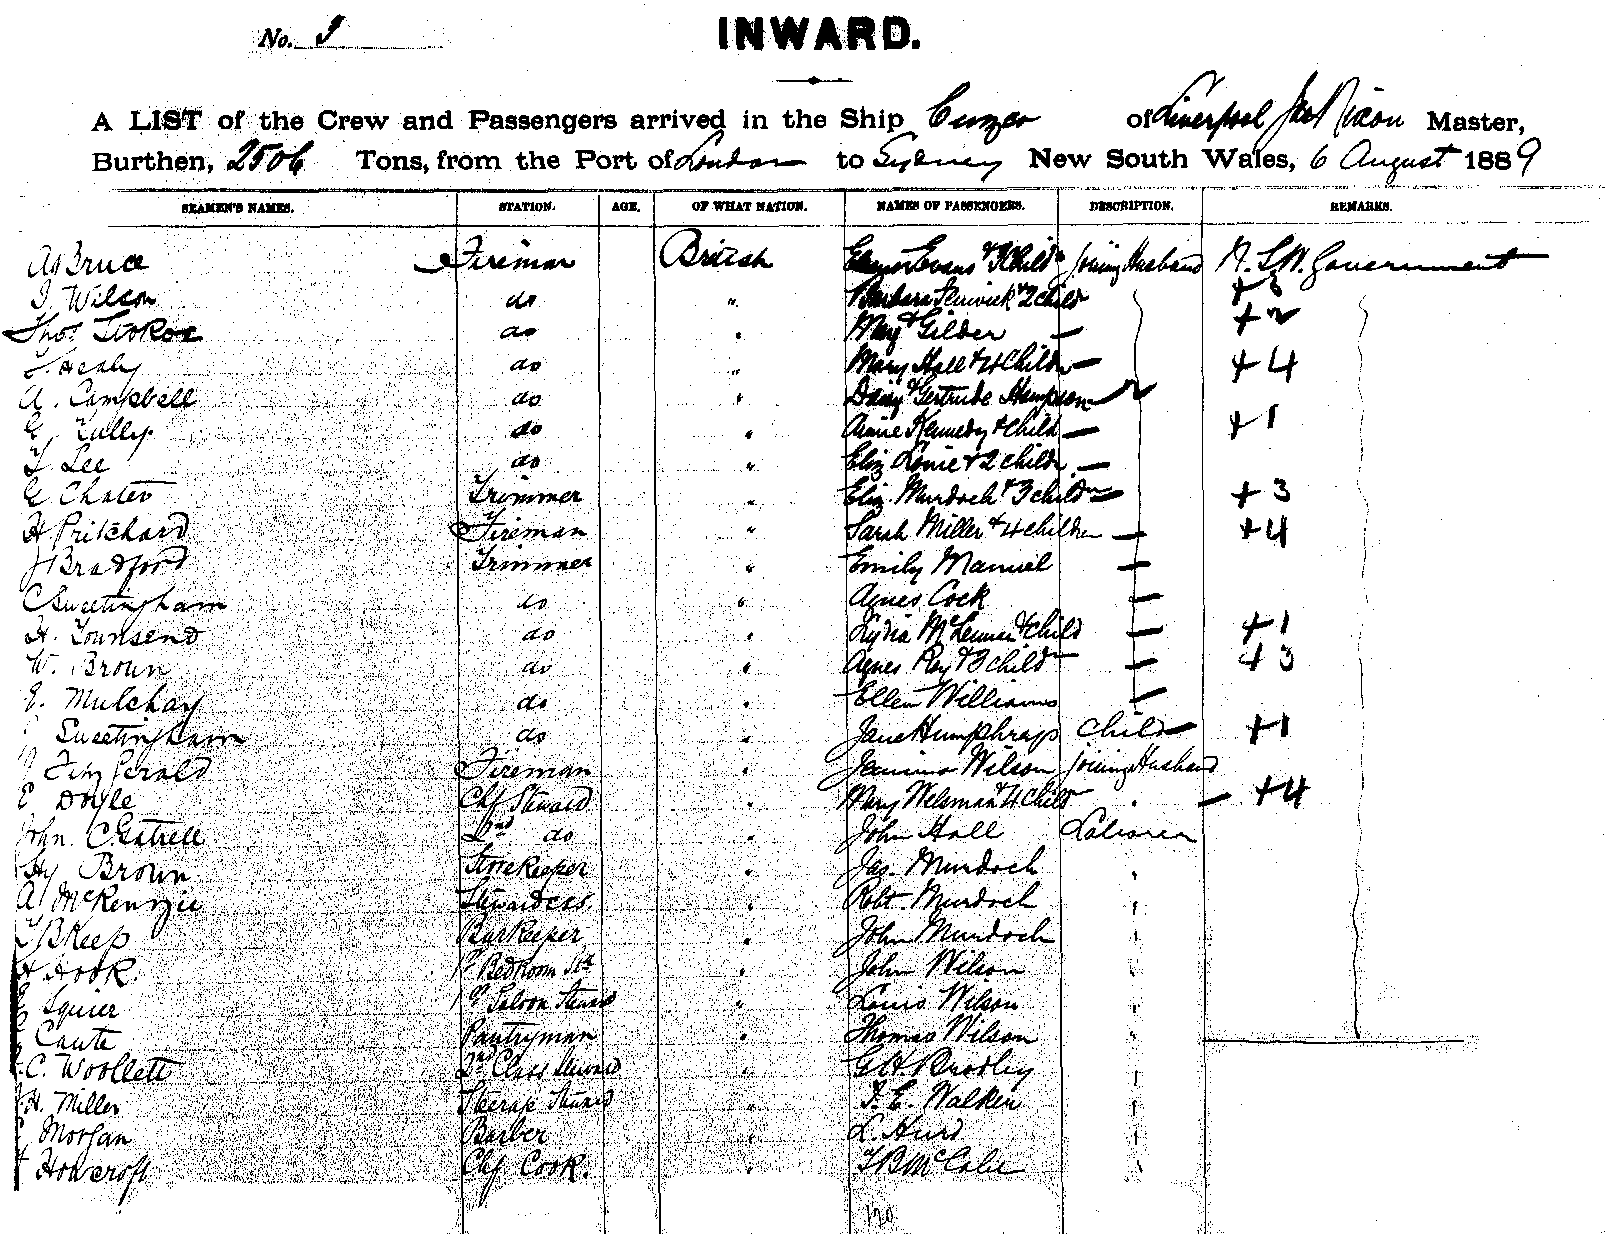 No.
INWARD.
A LIST of the Crew and Passengers arrived in the Ship Cuzco of Liverpool Master,
Burthen, 2506 Tons, from the Port of London to Sydney New South Wales, 6 August 1889
SEAMEN'S NAMES. STATION. AGE. OF WHAT NATION. NAMES OF PASSENGERS. DESCRIPTION. REMARKS.
Bruce Fireman British Evans & Child joining Husband N.S.W. Government
Wilson do " Barbara Fenwick & 2 child + 3
Thos do " Mary Gilder — + 2
Healy do " Mary Hall & 4 Childn — + 4
A. Campbell do " Daisy & Gertrude
Tully do " Annie Kennedy & Child — + 1
Lee do " Eliz & 2 childn —
Trimmer " Eliz. Murdoch & 3 childn — + 3
H Pritchard Fireman " Sarah Miller & 4 children — + 4
J Bradford Trimmer " Emily Manuel —
C Sweetingham do " Agnes Cock —
H. Townsend do " Lydia McLennan & Child — + 1
W. Brown do " Agnes Ray & 3 childn — + 3
E. Mulchay do " Ellen Williams —
Sweetingham do " Jane Humphrays child + 1
FitzGerald Fireman " Jemima Wilson joining Husband
E Doyle Chf Steward " Mary & 4 Childn — + 4
John C Gatrell 2nd do " John Hall Labourer
Hy Brown Storekeeper " Jas. Murdoch "
A McKenzie Stewardess " Robt Murdoch "
Barkeeper " John Murdoch "
Hook Bedroom Std " John Wilson "
Squier Saloon Steward " Louis Wilson "
Caute Pantryman " Thomas Wilson "
C. Woollett 2nd Class Steward G H Bradley "
H. Miller Steerage Steward " Walker "
Morgan Barber " L. Hurd "
Howcroft Chf Cook. "